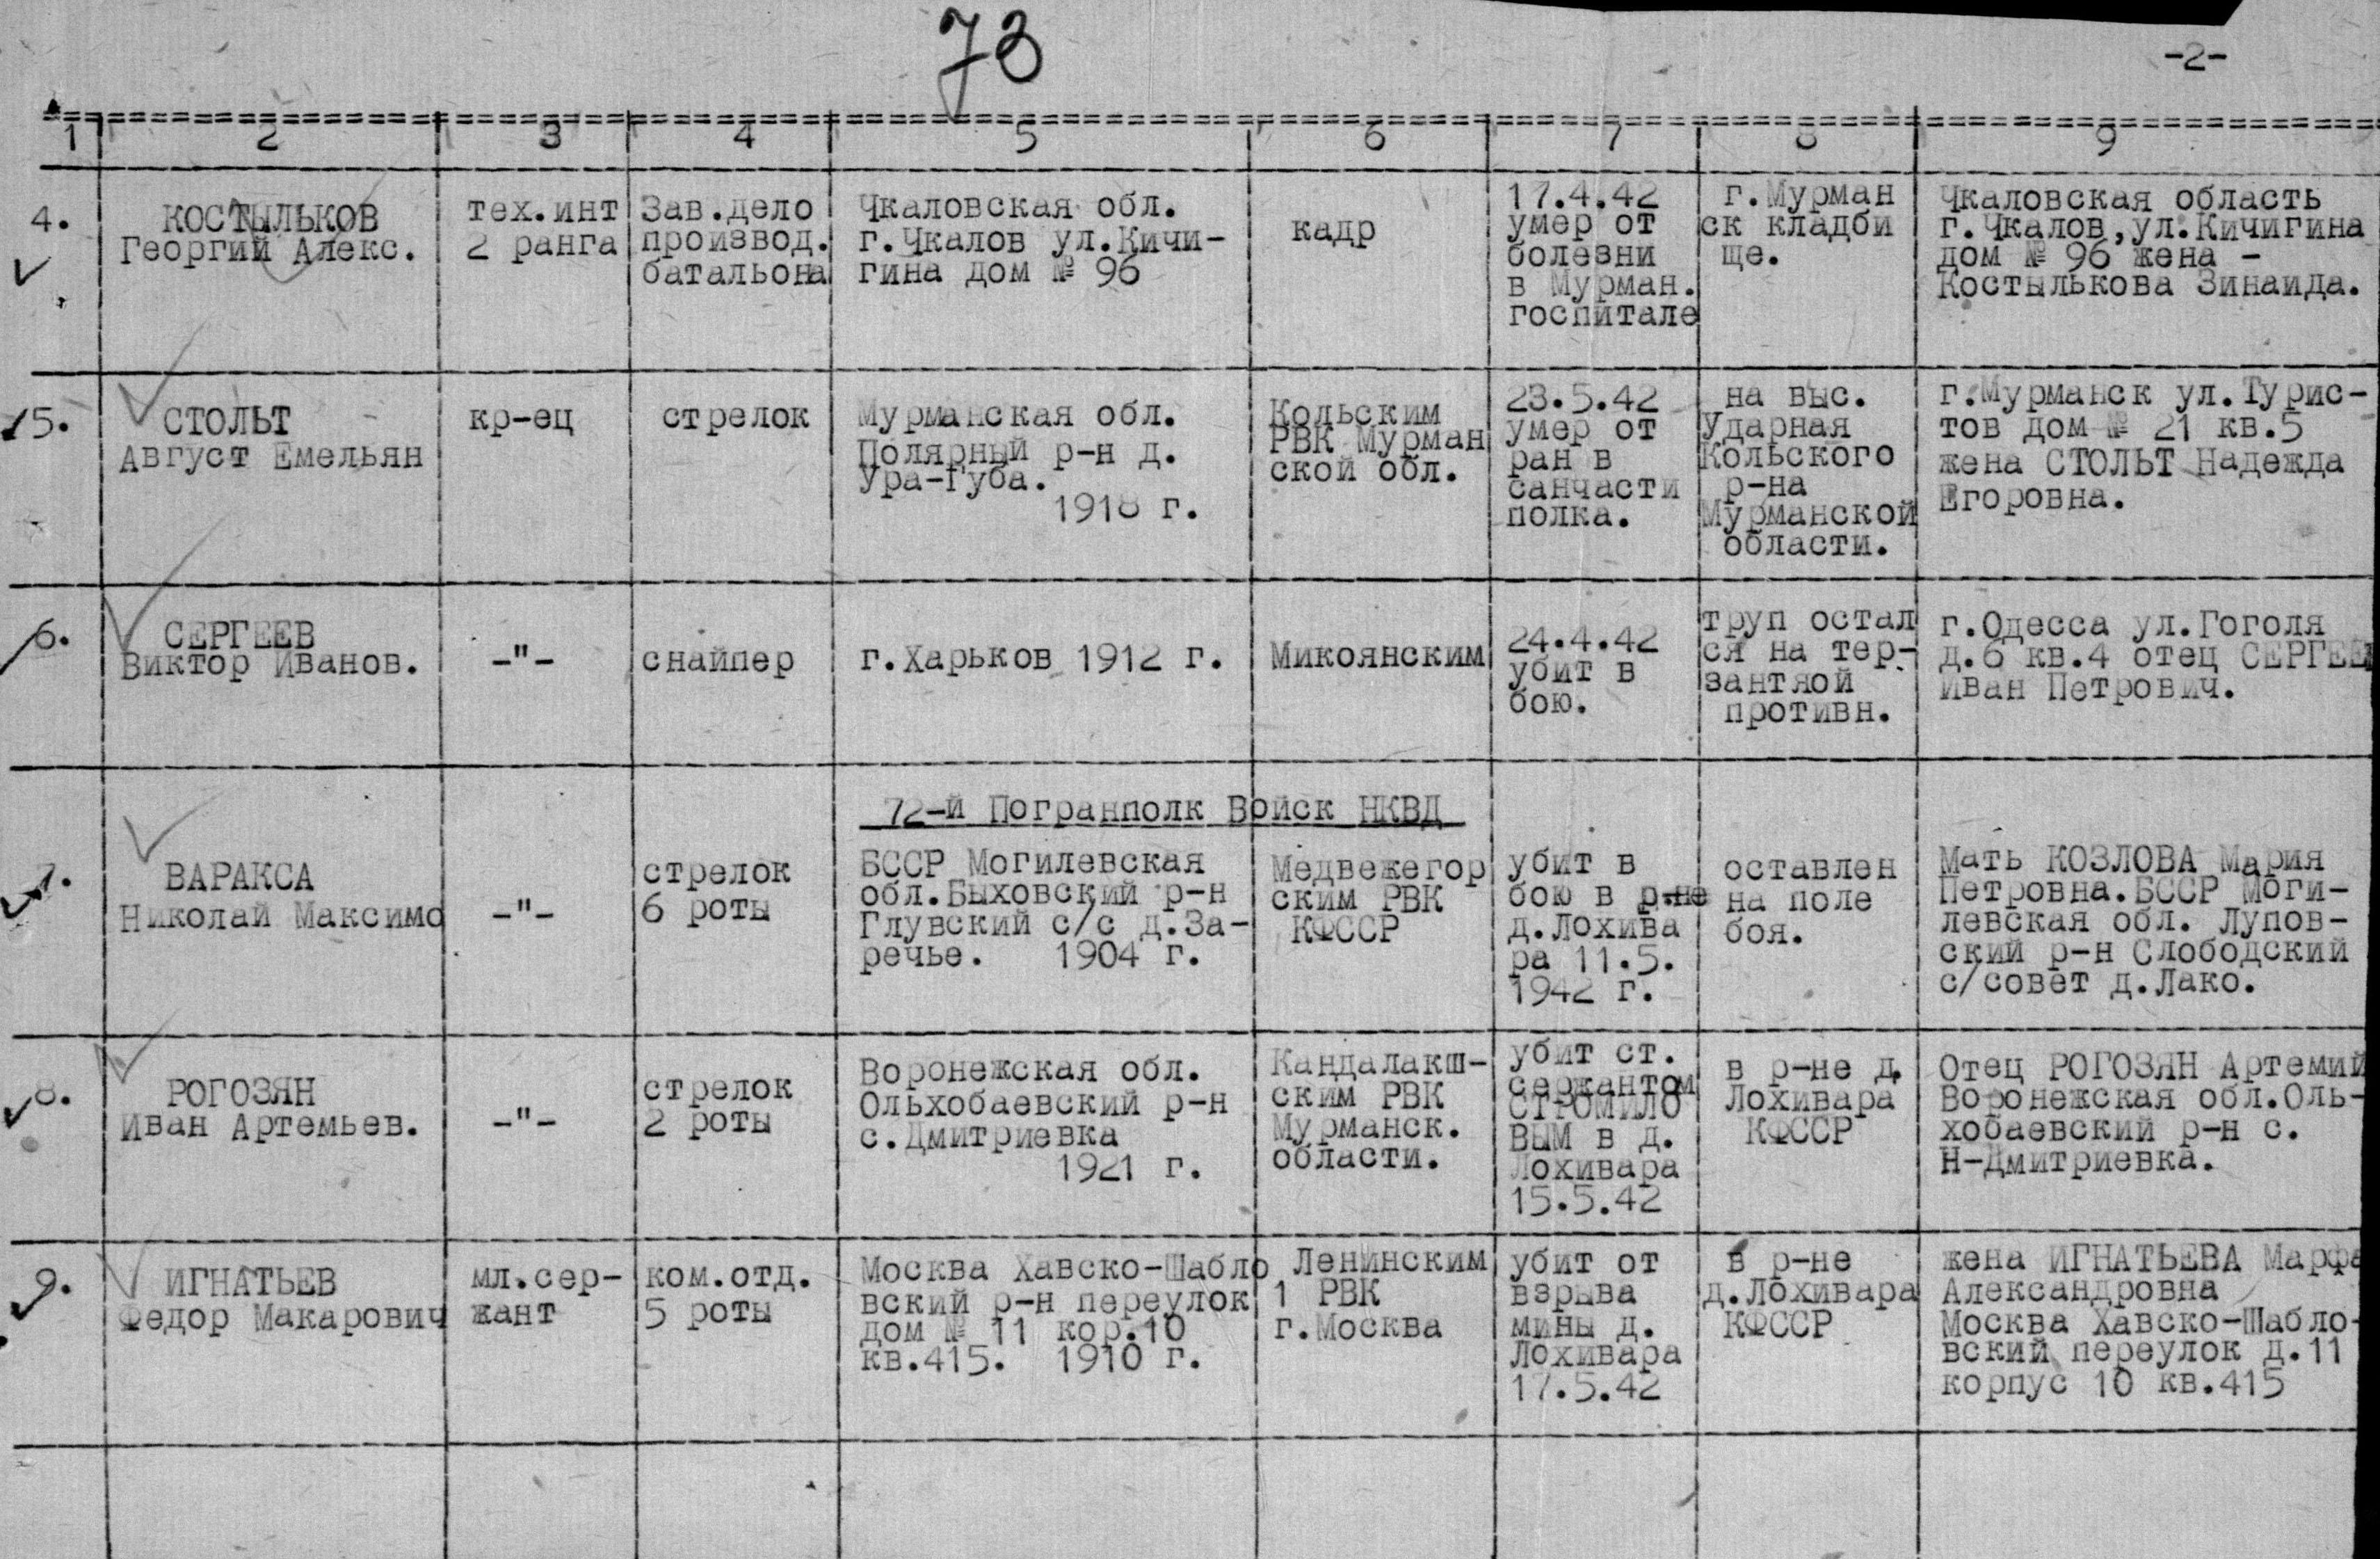 73
-2-
1 2 3 4 5 6 7 8 9
4.
КОСТЫЛЬКОВ
Георгий Алекс.
тех.инт
2 ранга
Зав.дело
производ.
батальона
Чкаловская обл.
г.Чкалов ул.Кичи-
гина дом № 96
кадр
17.4.42
умер от
болезни
в Мурман.
госпитале
г.Мурман
ск кладби
ще.
Чкаловская область
г.Чкалов,ул.Кичигина
дом № 96 жена -
Костылькова Зинаида.
5.
СТОЛЬТ
Август Емельян
кр-ец
стрелок
Мурманская обл.
Полярный р-н д.
Ура-Губа.
1918 г.
Кольским
РВК Мурман
ской обл.
23.5.42
умер от
ран в
санчасти
полка.
на выс.
Ударная
Кольского
р-на
Мурманской
области.
г.Мурманск ул.Турис-
тов дом № 21 кв.5
жена СТОЛЬТ Надежда
Егоровна.
6.
СЕРГЕЕВ
Виктор Иванов.
-"-
снайпер
г.Харьков 1912 г.
Микоянским
24.4.42
убит в
бою.
труп остал
ся на тер-
зантяой
противн.
г.Одесса ул.Гоголя
д.6 кв.4 отец СЕРГЕЕВ
Иван Петрович.
72-й Погранполк Войск НКВД
7.
ВАРАКСА
Николай Максимо
-"-
стрелок
6 роты
БССР Могилевская
обл.Быховский р-н
Глувский с/с д.За-
речье. 1904 г.
Медвежегор
ским РВК
КФССР
убит в
бою в р-не
д.Лохива
ра 11.5.
1942 г.
оставлен
на поле
боя.
Мать КОЗЛОВА Мария
Петровна.БССР Моги-
левская обл. Лупов-
ский р-н Слободский
с/совет д.Лако.
8.
РОГОЗЯН
Иван Артемьев.
-"-
стрелок
2 роты
Воронежская обл.
Ольхобаевский р-н
с.Дмитриевка
1921 г.
Кандалакш-
ским РВК
Мурманск.
области.
убит ст.
сержантом
СТРОМИЛО
ВЫМ в д.
Лохивара
15.5.42
в р-не д.
Лохивара
КФССР
Отец РОГОЗЯН Артемий
Воронежская обл.Оль-
хобаевский р-н с.
Н-Дмитриевка.
9.
ИГНАТЬЕВ
Федор Макарович
мл.сер-
жант
ком.отд.
5 роты
Москва Хавско-Шабло
вский р-н переулок
дом № 11 кор.10
кв.415. 1910 г.
Ленинским
1 РВК
г.Москва
убит от
взрыва
мины д.
Лохивара
17.5.42
в р-не
д.Лохивара
КФССР
жена ИГНАТЬЕВА Марфа
Александровна
Москва Хавско-Шабло-
вский переулок д.11
корпус 10 кв.415